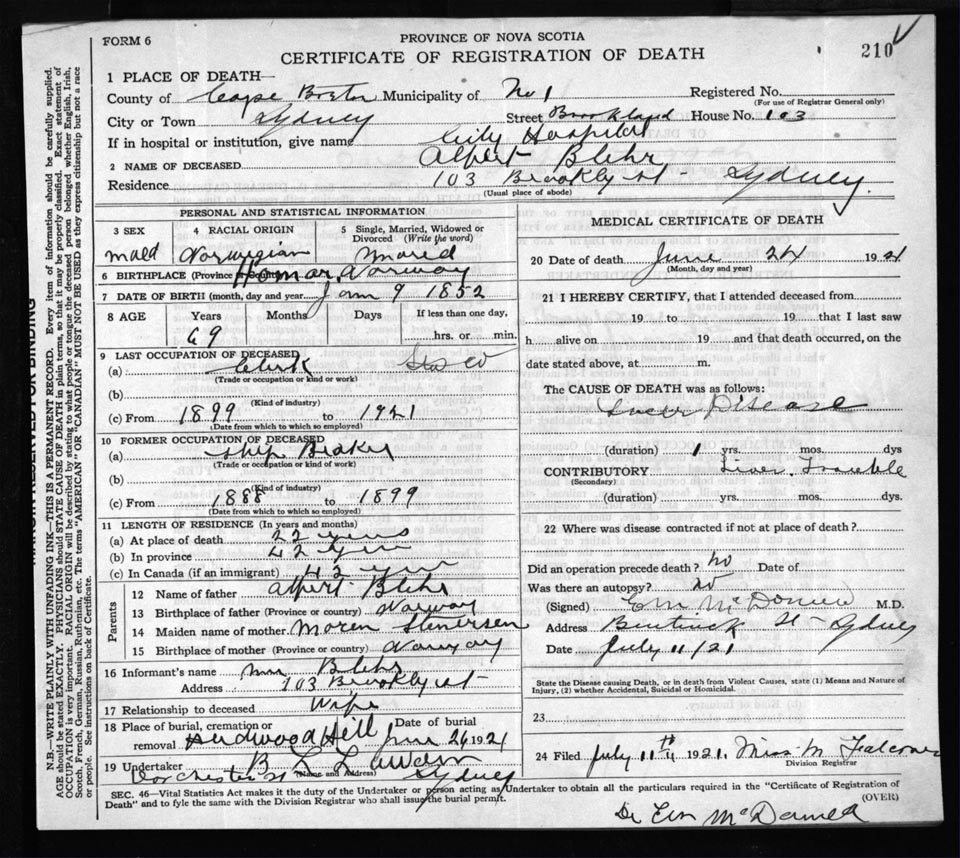 FORM 6
PROVINCE OF NOVA SCOTIA
CERTIFICATE OF REGISTRATION OF DEATH
210
1 PLACE OF DEATH—
County of Cape Breton Municipality of No 1 Registered No.
(For use of Registrar General only)
City or Town Sydney Street Brookland House No. 103
If in hospital or institution, give name City Hospital
2 NAME OF DECEASED Albert Blehr
Residence 103 St - Sydney.
(Usual place of abode)
PERSONAL AND STATISTICAL INFORMATION
3 SEX
4 RACIAL ORIGIN
5 Single, Married, Widowed or Divorced (Write the word)
Norwegian
6 BIRTHPLACE (Province or Country) Norway
7 DATE OF BIRTH (month, day and year 9 1852
8 AGE Years Months Days If less than one day,
69 hrs. or min.
9 LAST OCCUPATION OF DECEASED
(a) Clerk
(Trade or occupation or kind of work)
(b)
(Kind of industry)
(c) From 1899 to 1921
(Date from which to which so employed)
10 FORMER OCCUPATION OF DECEASED
(a) Ship
(Trade or occupation or kind of work)
(b)
(Kind of industry)
(c) From 1888 to 1899
(Date from which to which so employed)
11 LENGTH OF RESIDENCE (In years and months)
(a) At place of death 22 years
(b) In province 42 years
(c) In Canada (if an immigrant) 42 years
Parents
12 Name of father Albert Blehr
13 Birthplace of father (Province or country) Norway
14 Maiden name of mother Maren Stenersen
15 Birthplace of mother (Province or country) Norway
16 Informant's name Mrs Blehr
Address 103 St
17 Relationship to deceased Wife
18 Place of burial, cremation or removal Hardwood Hill Date of burial June 26 1921
19 Undertaker B L
(Name and Address)
Dorchester St Sydney
MEDICAL CERTIFICATE OF DEATH
20 Date of death June 24 1921
(Month, day and year)
21 I HEREBY CERTIFY, that I attended deceased from
19 to 19 that I last saw
h alive on 19 and that death occurred, on the
date stated above, at m.
The CAUSE OF DEATH was as follows:
Disease
(duration) 1 yrs. mos. dys
CONTRIBUTORY Liver Trouble
(Secondary)
(duration) yrs. mos. dys.
22 Where was disease contracted if not at place of death?
Did an operation precede death? No Date of
Was there an autopsy? No
(Signed) M.D.
Address Bentinck St - Sydney
Date July 11/21
State the Disease causing Death, or in death from Violent Causes, state (1) Means and Nature of Injury, (2) whether Accidental, Suicidal or Homicidal.
23
24 Filed July 11th 1921. Miss M Falconer
Division Registrar
SEC. 46—Vital Statistics Act makes it the duty of the Undertaker or person acting as Undertaker to obtain all the particulars required in the "Certificate of Registration of
Death" and to fyle the same with the Division Registrar who shall issue the burial permit.
(OVER)
MARGIN RESERVED FOR BINDING
N.B.—WRITE PLAINLY WITH UNFADING INK—THIS IS A PERMANENT RECORD. Every item of information should be carefully supplied.
AGE should be stated EXACTLY. PHYSICIANS should STATE CAUSE OF DEATH in plain terms, so that it may be properly classified. Exact statement of
OCCUPATION is very important. RACIAL ORIGIN will be described by stating to what people or tongue the deceased person belonged whether English, Irish,
Scotch, French, German, Russian, Ruthenian, etc. The terms "AMERICAN" OR "CANADIAN" MUST NOT BE USED as they express citizenship but not a race
or people. See instructions on back of Certificate.